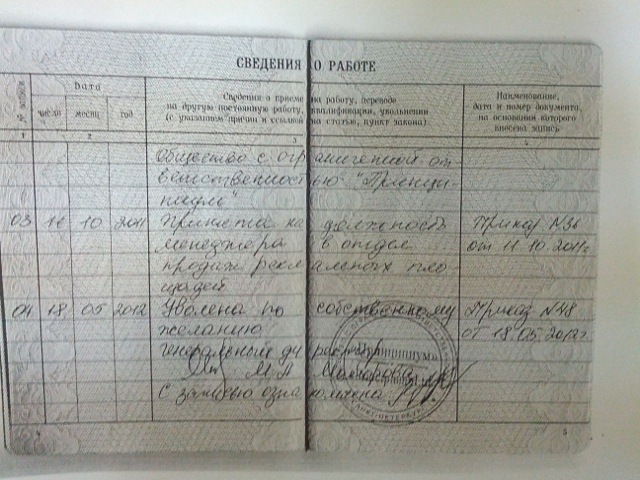 СВЕДЕНИЯ О РАБОТЕ
№ записи
Дата
число месяц год
Сведения о приеме на работу, переводе
на другую постоянную работу, квалификации, увольнении
(с указанием причин и ссылкой на статью, пункт закона)
Наименование,
дата и номер документа,
на основании которого
внесена запись
1 2 3 4
Общество с ограниченной от
ветственностью "Принци-
пиум"
03 11 10 2011 Принята на должность Приказ №36
менеджера в отдел от 11.10.2011г
продаж рекламных пло
щадей
04 18 05 2012 Уволена по собственному Приказ №48
желанию от 18.05.2012г
генеральный директор
М.А.
С записью ознакомлена
Принципиум
4 5